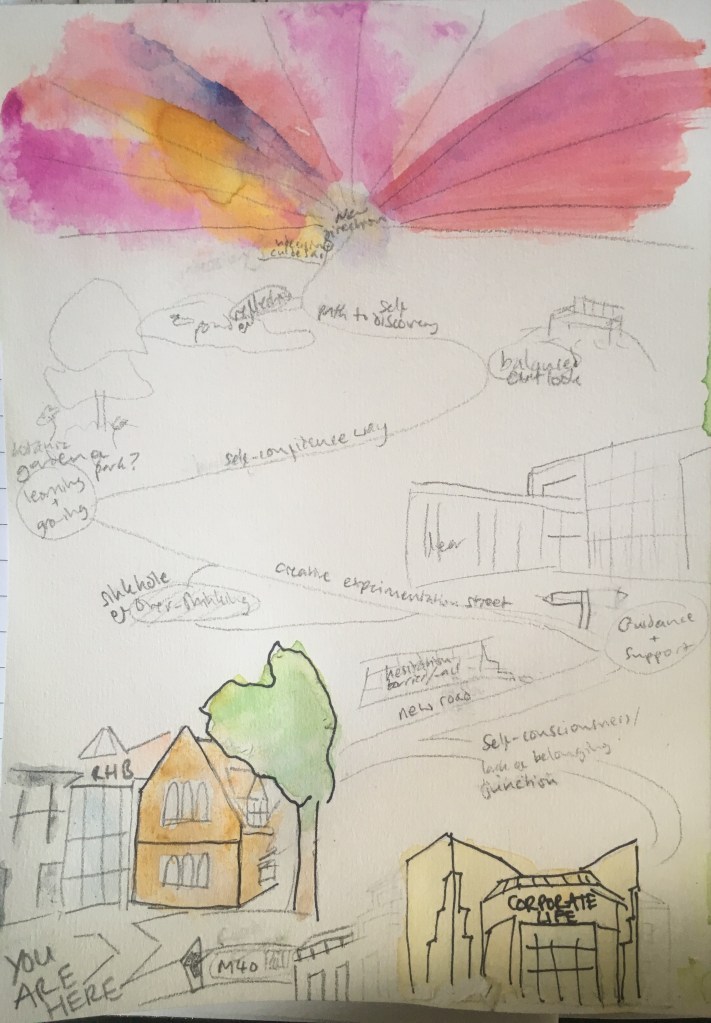 New
Direction
cul de sac
pond of
reflection
path to self
discovery
balanced
outlook
self-confidence way
botanic
garden
park?
learning
+
growing
creative experimentation street
sinkhole
of over-thinking
Guidance
+
Support
hesitation
barrier/wall
new road
Self-consciousness/
lack of belonging
junction
RHB
CORPORATE
LIFE
M40
YOU
ARE
HERE